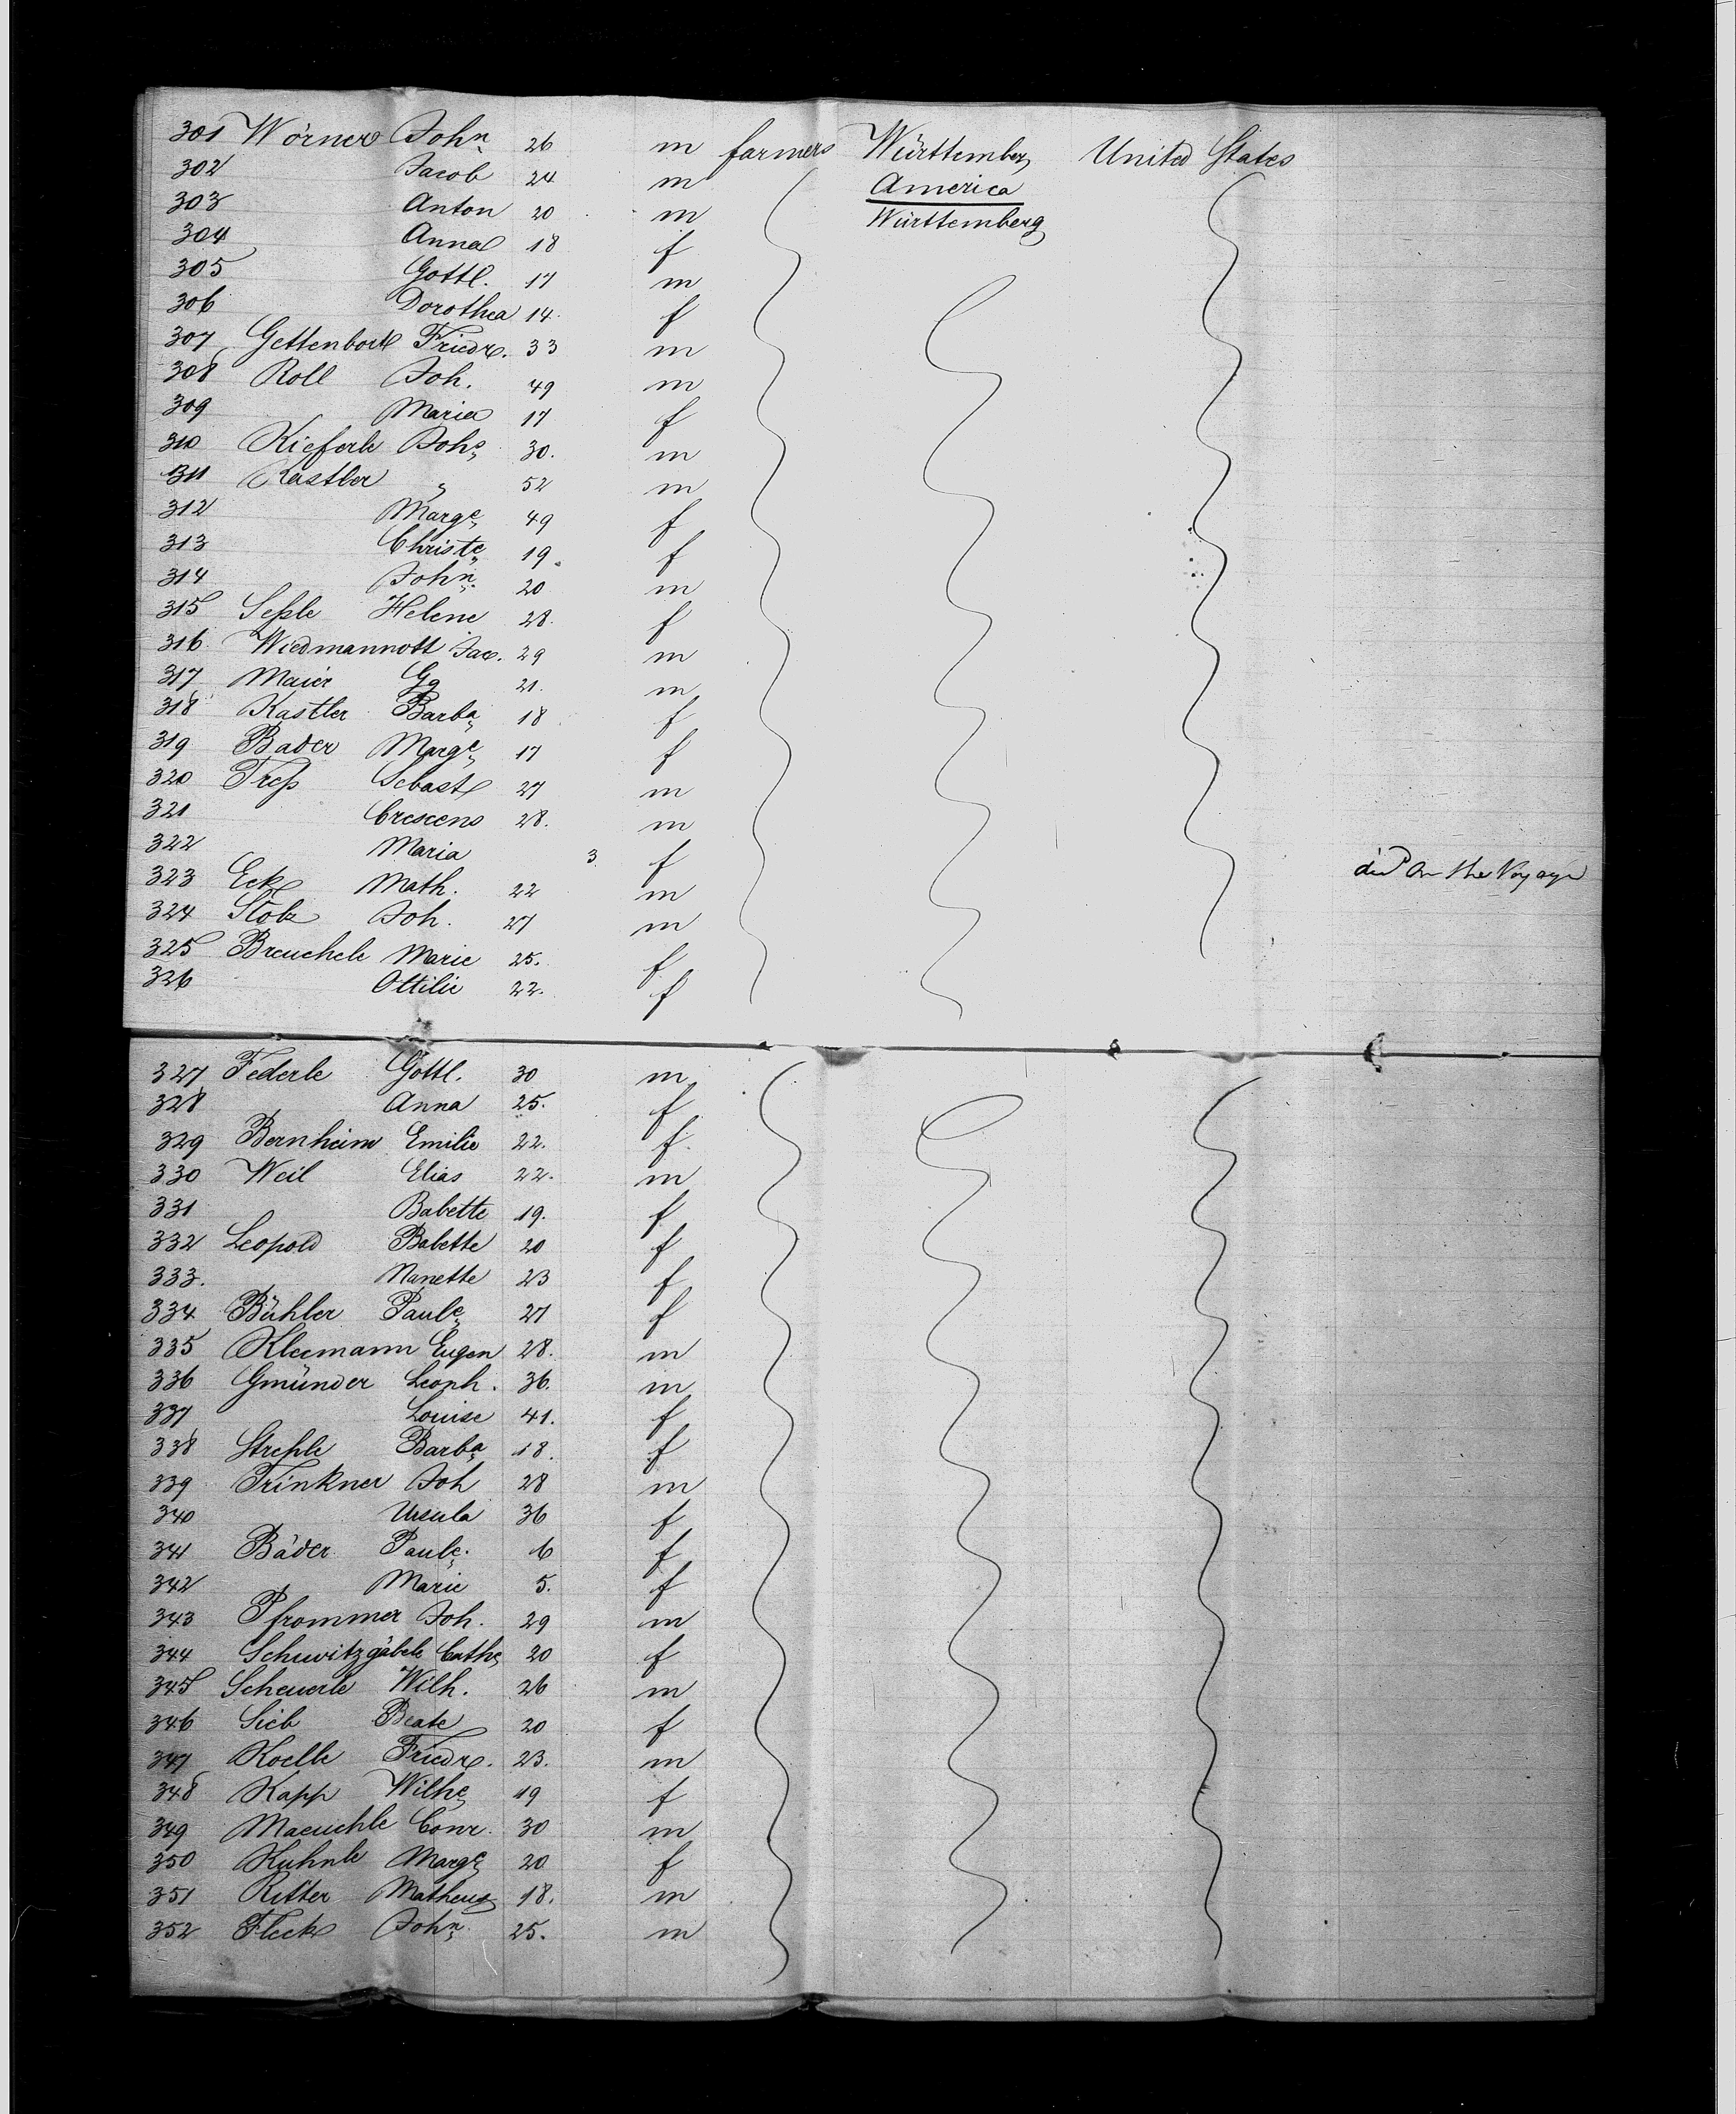 301 Wörner John 26 m farmers Württemberg United States
302 Jacob 24 m America
303 Anton 20 m Württemberg
304 Anna 18 f
305 Gottl. 17 m
306 Dorothea 14 f
307 Gettenbort Friedr. 33 m
308 Roll Joh. 49 m
309 Maria 17 f
310 Kieferle Johs 30. m
311 Kastler " 52 m
312 Marge 49 f
313 Christe 19 f
314 John. 20 m
315 Seßle Helene 28. f
316 Wiedmannott Jac. 29 m
317 Maier Gg 21. m
318 Kastler Barba 18 f
319 Bader Marge 17 f
320 Treß Sebast 27 m
321 Crescens 28. m
322 Maria 3 f died on the Voyage
323 Eck Math. 22 m
324 Stolz Joh. 27 m
325 Breuchele Marie 25. f
326 Ottilie 22. f
327 Federle Gottl. 30 m
328 Anna 25. f
329 Bernheim Emilie 22. f
330 Weil Elias 22. m
331 Babette 19. f
332 Leopold Babette 20 f
333. Nanette 23 f
334 Bühler Paule 27 f
335 Kleemann Eugen 28. m
336 Gmünder Leonh. 36. m
337 Louise 41. f
338 Streßle Barba 18. f
339 Trinkner Joh 28 m
340 Ursula 36 f
341 Bäder Paule. 6 f
342 Marie 5. f
343 Pfrommer Joh. 29 m
344 Schwitzgäbele Cathe 20 f
345 Scheuerle Wilh. 26 m
346 Sieb Beate 20 f
347 Koelle Friedr. 23. m
348 Kapp Wilhe 19 f
349 Maeuchle Conr. 30 m
350 Kuhnle Marge 20 f
351 Ritter Matheus 18. m
352 Fleck John. 25. m